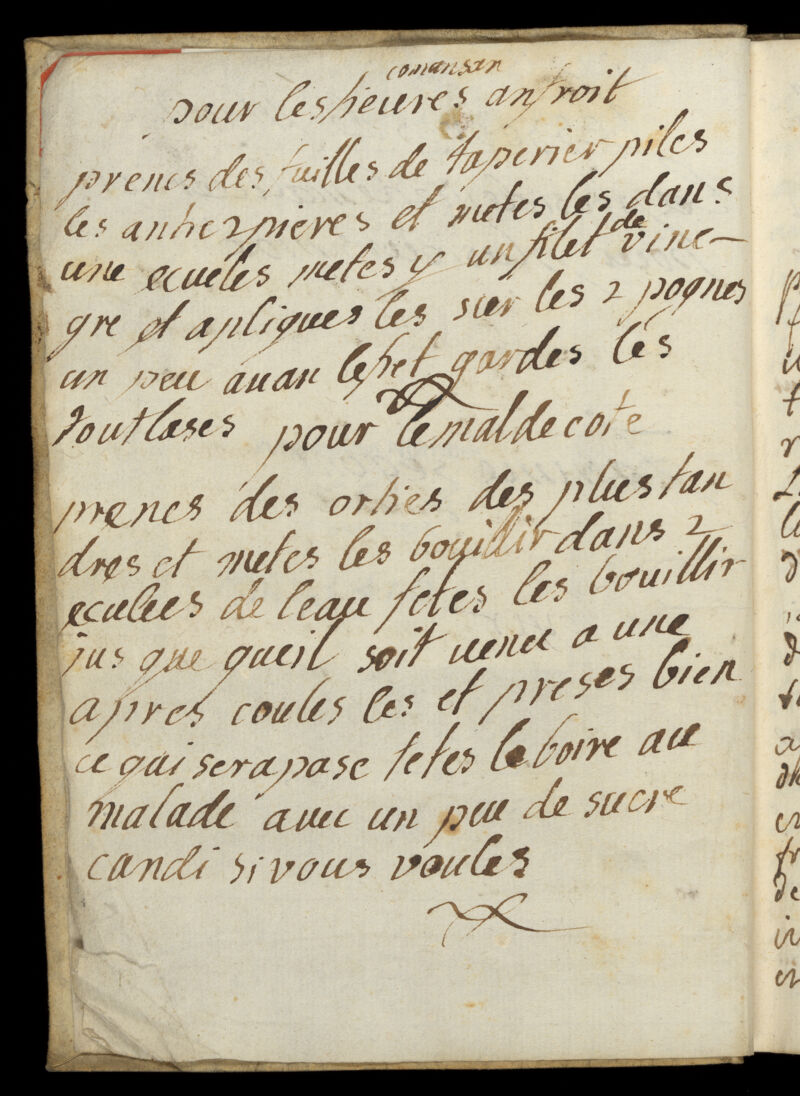 comansan
pour les fieures anfroit
prenes des fuilles de taperier piles
les antre 2 pieres et metes les dans
une ecueles metes y un filet de vine–
gre et apliques les sur les 2 pognes
un peu auan lefret gardes les
toutlases pour le mal de cote
prenes des orties des plus tan
dres et metes les bouillir dans 2
eculees de leau fetes les bouillir
jus que queil soit uenu a une
apres coules les et preses bien
ce qui sera pase fetes le boire au
malade auec un peu de sucre
candi si vous voules